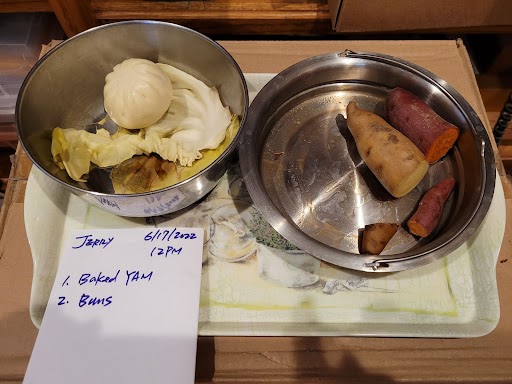 JERRY 6/17/2022
12PM
1. Baked YAM
2. Buns